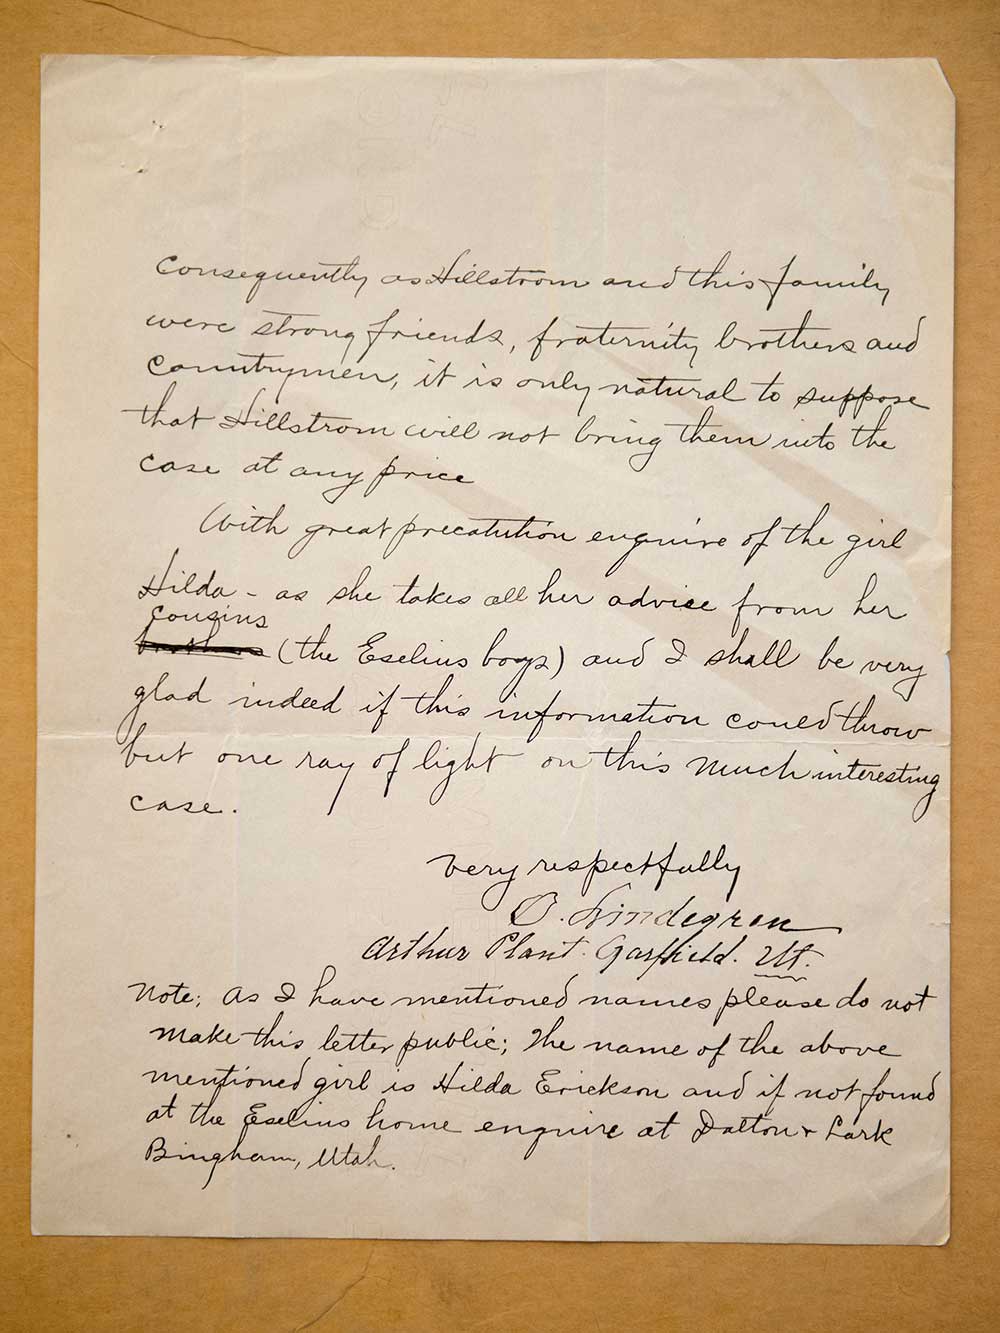 consequently as Hillstrom and this family
were strong friends, fraternity brothers and
countrymen, it is only natural to suppose
that Hillstrom will not bring them into the
case at any price
With great precatution enquire of the girl
Hilda - as she takes all her advise from her
cousins
brothers (the Eselius boys) and I shall be very
glad indeed if this information could throw
but one ray of light on this much interesting
case.
very respectfully
O. Lindegren
Arthur Plant. Garfield. Ut.
Note; As I have mentioned names please do not
make this letter public; The name of the above
mentioned girl is Hilda Erickson and if not found
at the Eselius home enquire at Dalton & Lark
Bingham, Utah.